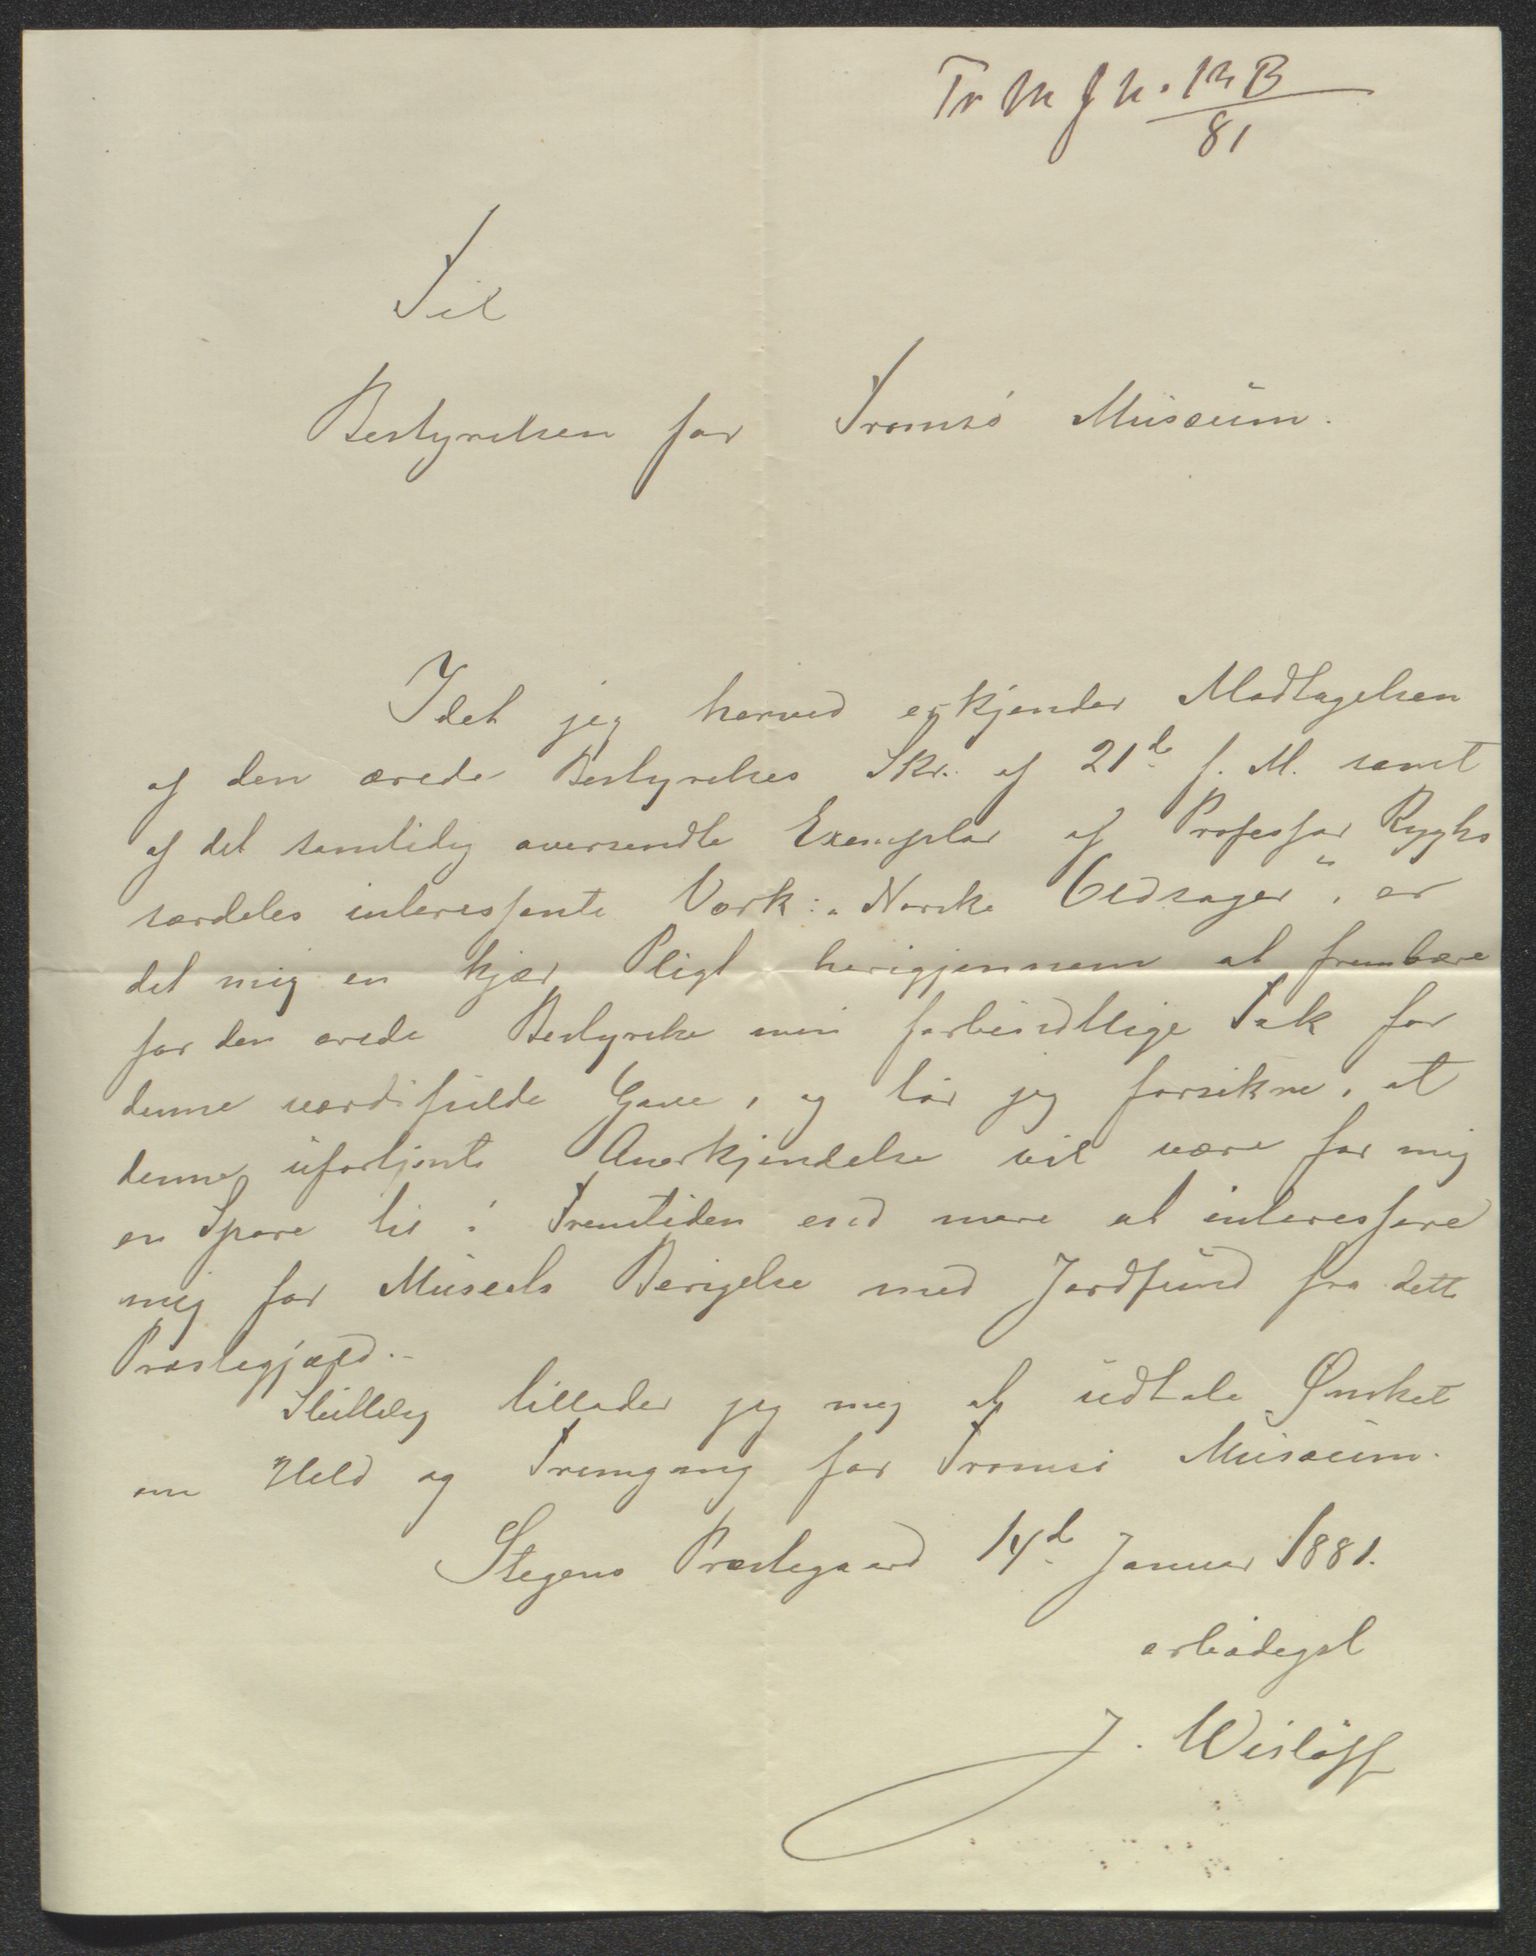 Tr M J N. 12 B
81
Til
Bestyrelsen for Tromsø Museum.
Idet jeg herved erkjender Modtagelsen
af den ærede Bestyrelses Skr. af 21de f. M. samt
af det samtidig oversendte Exemplar af Professor Ryghs
særdeles interessante Værk: „Norske Oldsager", er
det mig en kjær Pligt herigjennem at frembære
for den ærede Bestyrelse min forbindtlige Tak for
denne værdifulde Gave, og tør jeg forsikre, at
denne ufortjente Anerkjendelse vil være for mig
en Spore til i Fremtiden end mere at interessere
mig for Museets Berigelse med Jordfund fra dette
Præstegjæld.-
Sluttelig tillader jeg mig at udtale Ønsket
om Held og Fremgang for Tromsø Museum.
Stegens Præstegaard 14de Januar 1881.
ærbødigst
J. Wisløff